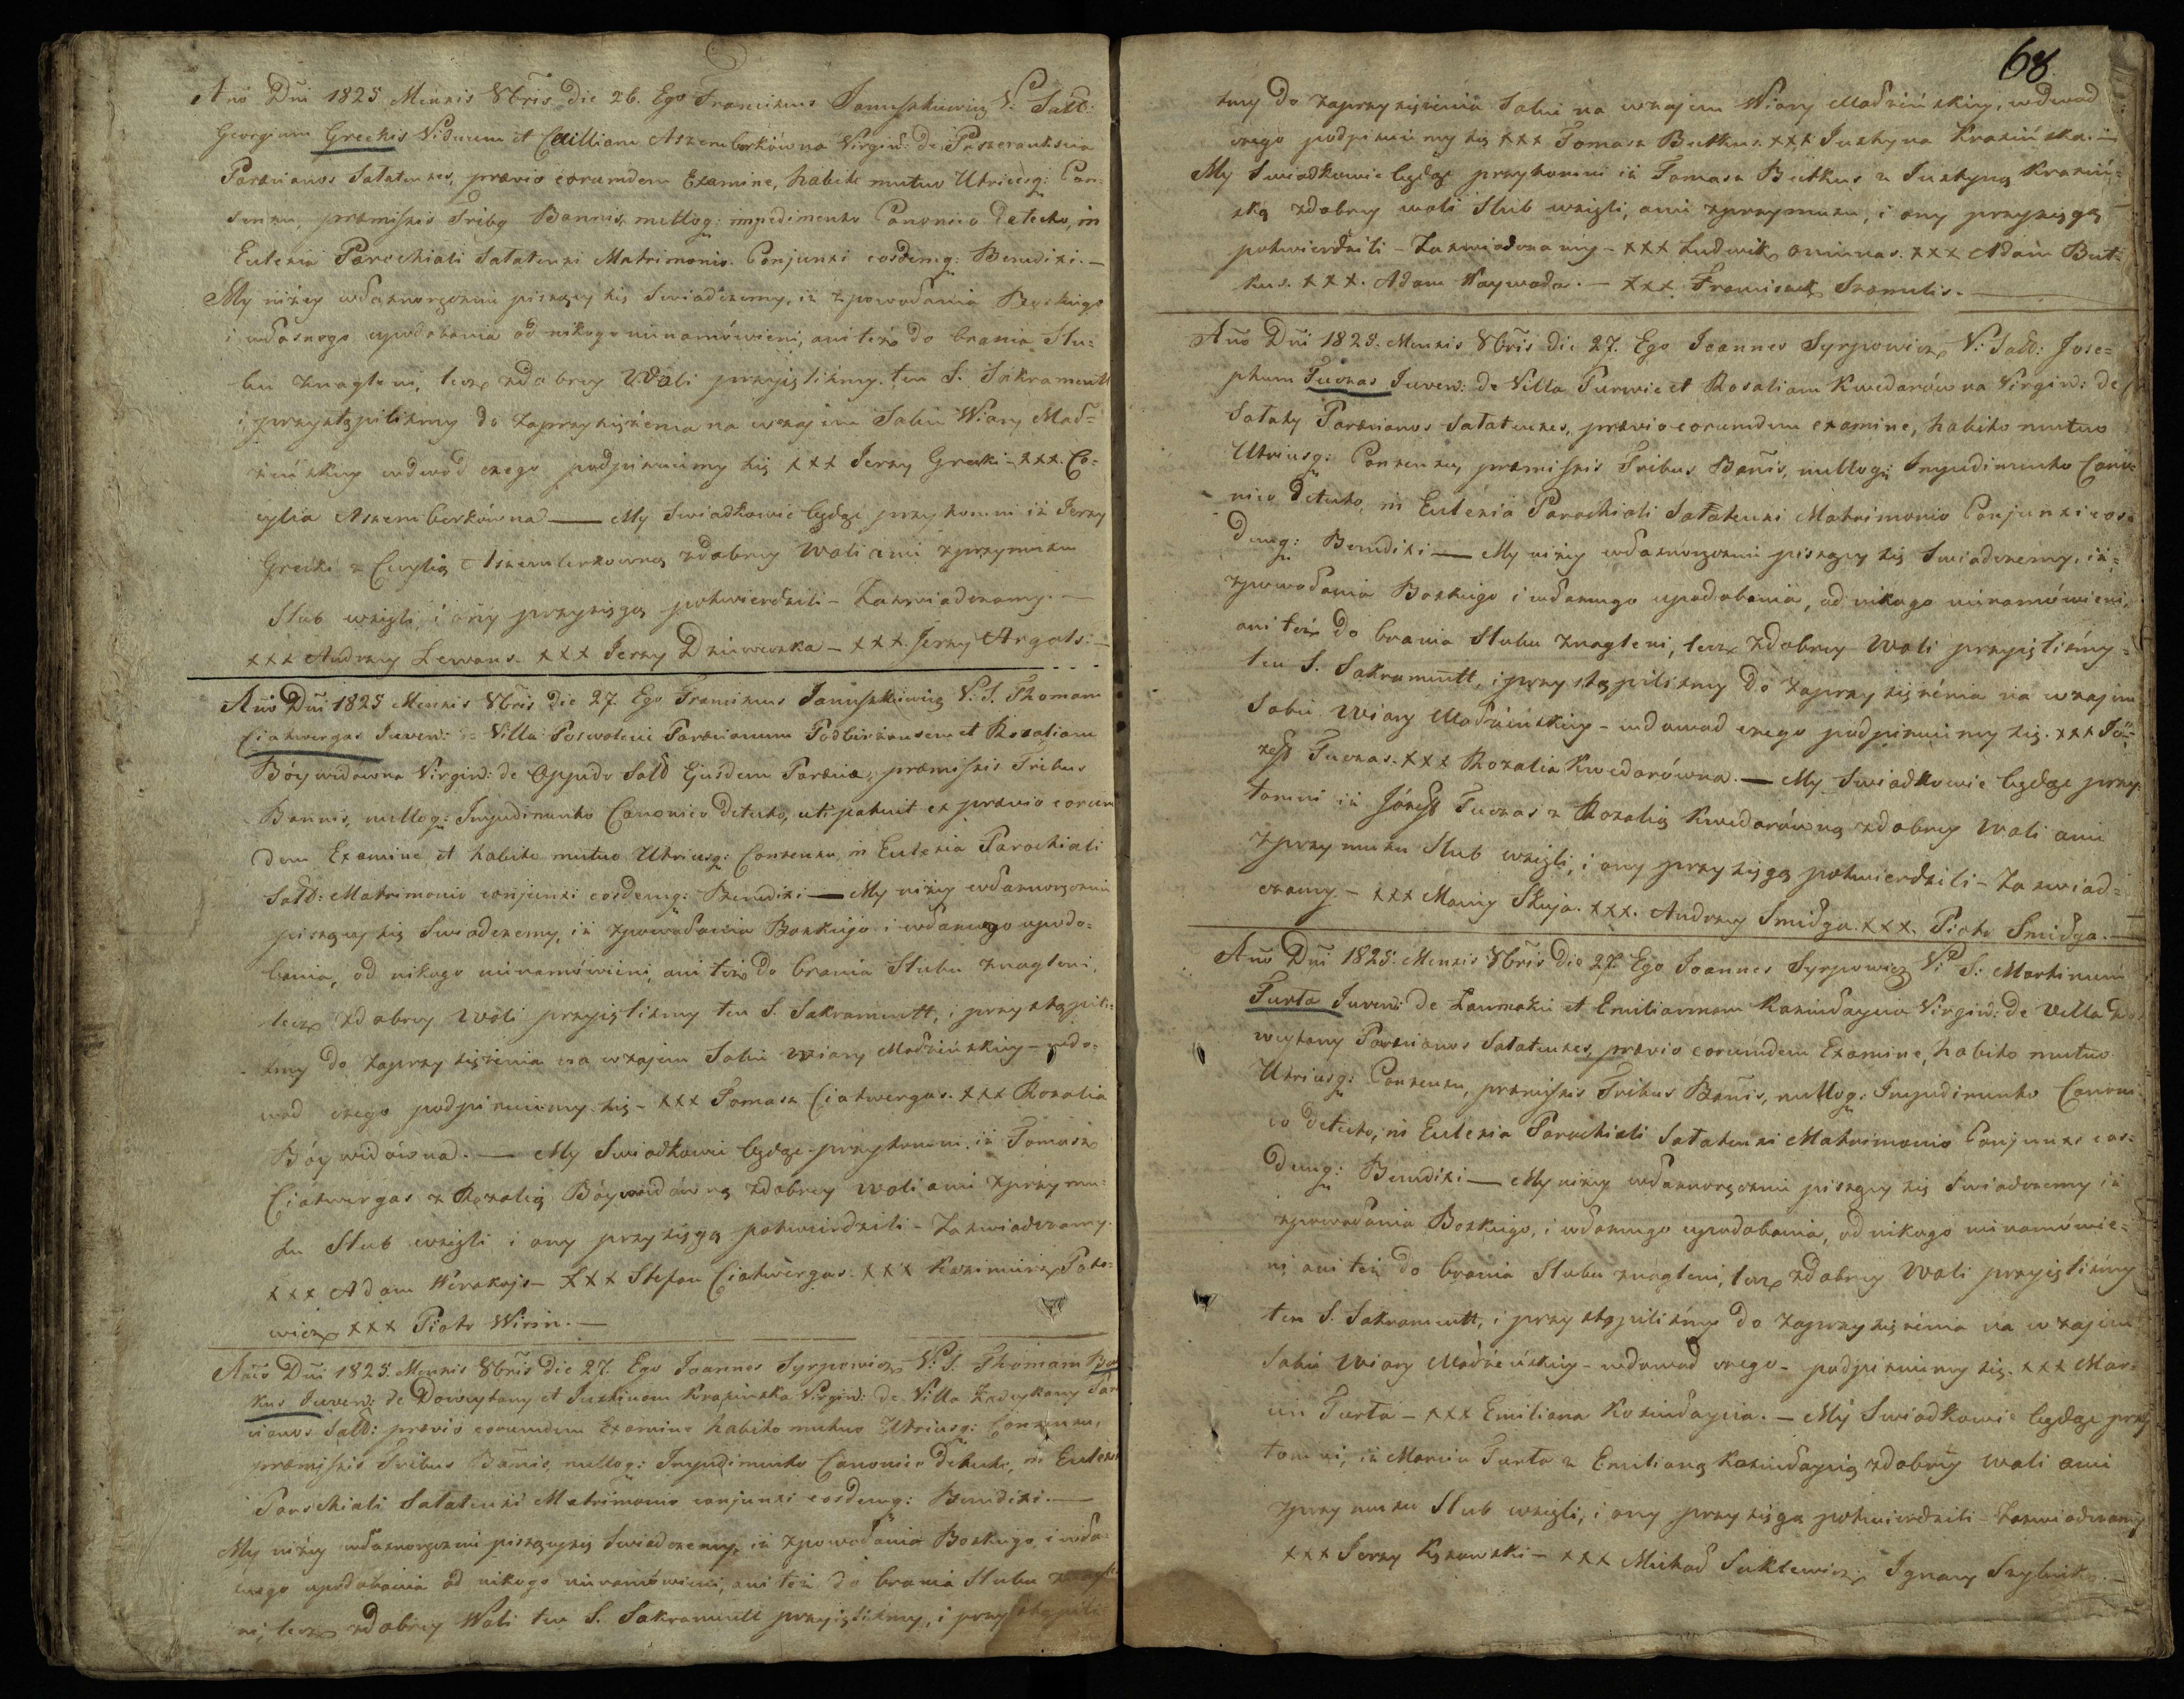 Año Dñi 1825 Mensis 8bris die 26. Ego Franciscus Januszkiewicz V. Sałł:
Georgium Greckis Viduum et Cæciliam Aszemberkówna Virgin: de
Parznianos Satatenses, prævio eorumdem Examine, habito mutuo Utriusq: Con-
sensu, præmissis Tribq Bannis, nulloq: impedimento Canonico detecto, in
Eulezia Parochiali Satatensi Matrimonio Conjunxi eosdemq: Benedixi. —
My niżey własnoręcznie piszący się Swiadczemy, iż zpowodania Bozkiego
i własnego upodobania od nikogo nienamówieni, ani też do brania Slu-
bu znagleni, lecz zdobrey Woli przyięliśmy ten S. Sakramentt
i przystąpiliśmy do zaprzysiężenia na wzajem Sobie Wiary Mał-
żeńskiey wdowod czego podpisuiemy się xxx Jerzy Grecki - xxx. Ce-
cylia Aszemberkówna — My Swiadkowie będąc przytomni iż Jerzy
Grecki z Cecylią Aszemberkowną zdobrey Woli ani zprzymusu
Slub wzięli, i ony przysięgą potwierdzili - Zaswiadczamy. —
xxx Andrzey Lewans. xxx Jerzy Dziewerzka - xxx. Jerzy Argals. —
Año Dñi 1825 Mensis 8bris die 27. Ego Franciscus Januszkiewicz V. S. Thomam
Ciatwergas Juven: Villa Poswolcie Parznianum Podbirżansem et Rozaliam
Bóywidówna Virgin: de Oppido Sałł Ejusdem Parznia, præmissis Tribus
Bannis, nulloq: Impedimento Canonico detecto, uti patuit ex prævio eorum
dem Examine, et habito mutuo Utriusq: Consensu, in Eulezia Parochiali
Sałł: Matrimonio conjunxi eosdemq: Benedixi — My niżey własnoręcznie
piszący się Swiadczemy, iż zpowodania Bozkiego i własnego upodo-
bania, od nikogo nienamówieni, ani też do brania Slubu znagleni,
lecz zdobrey Woli przyięliśmy ten S. Sakramentt, i przystąpili-
śmy do zaprzysiężenia na wzajem Sobie Wiary Małżeńskiey - wdo-
wod czego podpisuiemy się - xxx Tomasz Ciatwergas. xxx Rozalia
Bóywidówna. — My Swiadkowie będąc przytomni iż Tomasz
Ciatwergas z Rozalią Bóywidówną zdobrey Woli ani zprzymu-
su Slub wzięli i ony przysięgą potwierdzili - Zaswiadczamy.
xxx Adam Werakojs - xxx Stefan Ciatwergas. xxx Kazimierz Pato-
wicz xxx Piotr Wirin. —
Año Dñi 1825. Mensis 8bris die 27. Ego Joannes Syrpowicz V. S. Thomam But
kus Juven: de Dowcytany et Justinam Krasinska Virgin: de Villa Zadeykany Parz
nianos Sałł: prævio eorumdem Examine habito mutuo Utriusq: Consensu,
præmissis Tribus Bañis, nulloq: Impedimento Canonico detecto, in Eulezia
Parochiali Satatensi Matrimonio conjunxi eosdemq: Benedixi. —
My niżey własnoręcznie piszącysię Swiadczemy, iż zpowodania Bozkiego, i wła-
snego upodobania od nikogo nienamówieni, ani też do brania Slubu znagle
ni, lecz zdobrey Woli ten S. Sakramentt przyięliśmy, i przystąpili
68
śmy do zaprzysiężenia Sobie na wzajem Wiary Małżeńskiey, wdowod
czego podpisuiemy się xxx Tomasz Butkus. xxx Justyna Krasińska. —
My Swiadkowie będąc przytomni iż Tomasz Butkus z Justyną Krasiń-
ską zdobrey woli Slub wzięli, ani zprzymusu, i ony przysięgą
potwierdzili - Zaswiadczamy - xxx Ludwik xxx Adam But-
kus. xxx. Adam Woywoda. — xxx Franciszek Szamelis. —
Año Dñi 1825. Mensis 8bris die 27. Ego Joannes Syrpowicz V: Sałł: Jose-
phum Tuczas Juven: de Villa Purwie et Rosaliam Kwedarówna Virgin: de
Sałaty Parznianos Satatenses, prævio eorumdem examine, habito mutuo
Utriusq: Consensu, præmissis Tribus Bañis, nulloq: Impedimento Cano-
nico detecto, in Eulezia Parochiali Satatensi Matrimonio Conjunxi eos-
demq: Benedixi — My niżey własnoręcznie piszący się Swiadczemy, iż
zpowodania Bozkiego i własnego upodobania, od nikogo nienamówieni,
ani też do brania Slubu znagleni, lecz zdobrey Woli przyięliśmy
ten S. Sakramentt, i przystąpiliśmy do zaprzysiężenia na wzajem
Sobie Wiary Małżeńskiey - wdowod czego podpisuiemy się. xxx Jó-
zeff Tuczas. xxx Rozalia Kwedarówna. — My Swiadkowie będąc przy-
tomni iż Józeff Tuczas z Rozalią Kwedarówną zdobrey Woli ani
zprzymusu Slub wzięli, i ony przysięgą potwierdzili - Zaswiad-
czamy. - xxx Maciey Skuja. xxx. Andrzey Smidga. xxx. Piotr Smidga. —
Año Dñi 1825. Mensis 8bris die 27. Ego Joannes Syrpowicz V: S: Martinum
Turta Juven: de Laumakie et Emiliannam Kazindaycia Virgin: de Villa Do
wcytany Parznianos Satatenses, prævio eorumdem Examine, habito mutuo
Utriusq: Consensu, præmissis Tribus Bañis, nulloq: Impedimento Canoni
co detecto, in Eulezia Parochiali Satatensi Matrimonio Conjunxi eos-
demq: Benedixi — My niżey własnoręcznie piszący się Swiadczemy iż
zpowodania Bozkiego, i własnego upodobania, od nikogo nienamówie-
ni, ani też do brania Slubu znagleni, lecz zdobrey Woli przyięliśmy
ten S. Sakramentt, i przystąpiliśmy do zaprzysiężenia na wzajem
Sobie Wiary Małżeńskiey - wdowod czego - podpisuiemy się. xxx Mar-
cin Turta - xxx Emiliana Kozindaycia. — My Swiadkowie będąc przy
tomni, iż Marcin Turta z Emilianą Kazindaycią zdobrey Woli ani
zprzymusu Slub wzięli, i ony przysięgą potwierdzili - Zaswiadczamy
xxx Jerzy Kęzowski - xxx Michał Suktewicz, Ignacy Szylnik. —